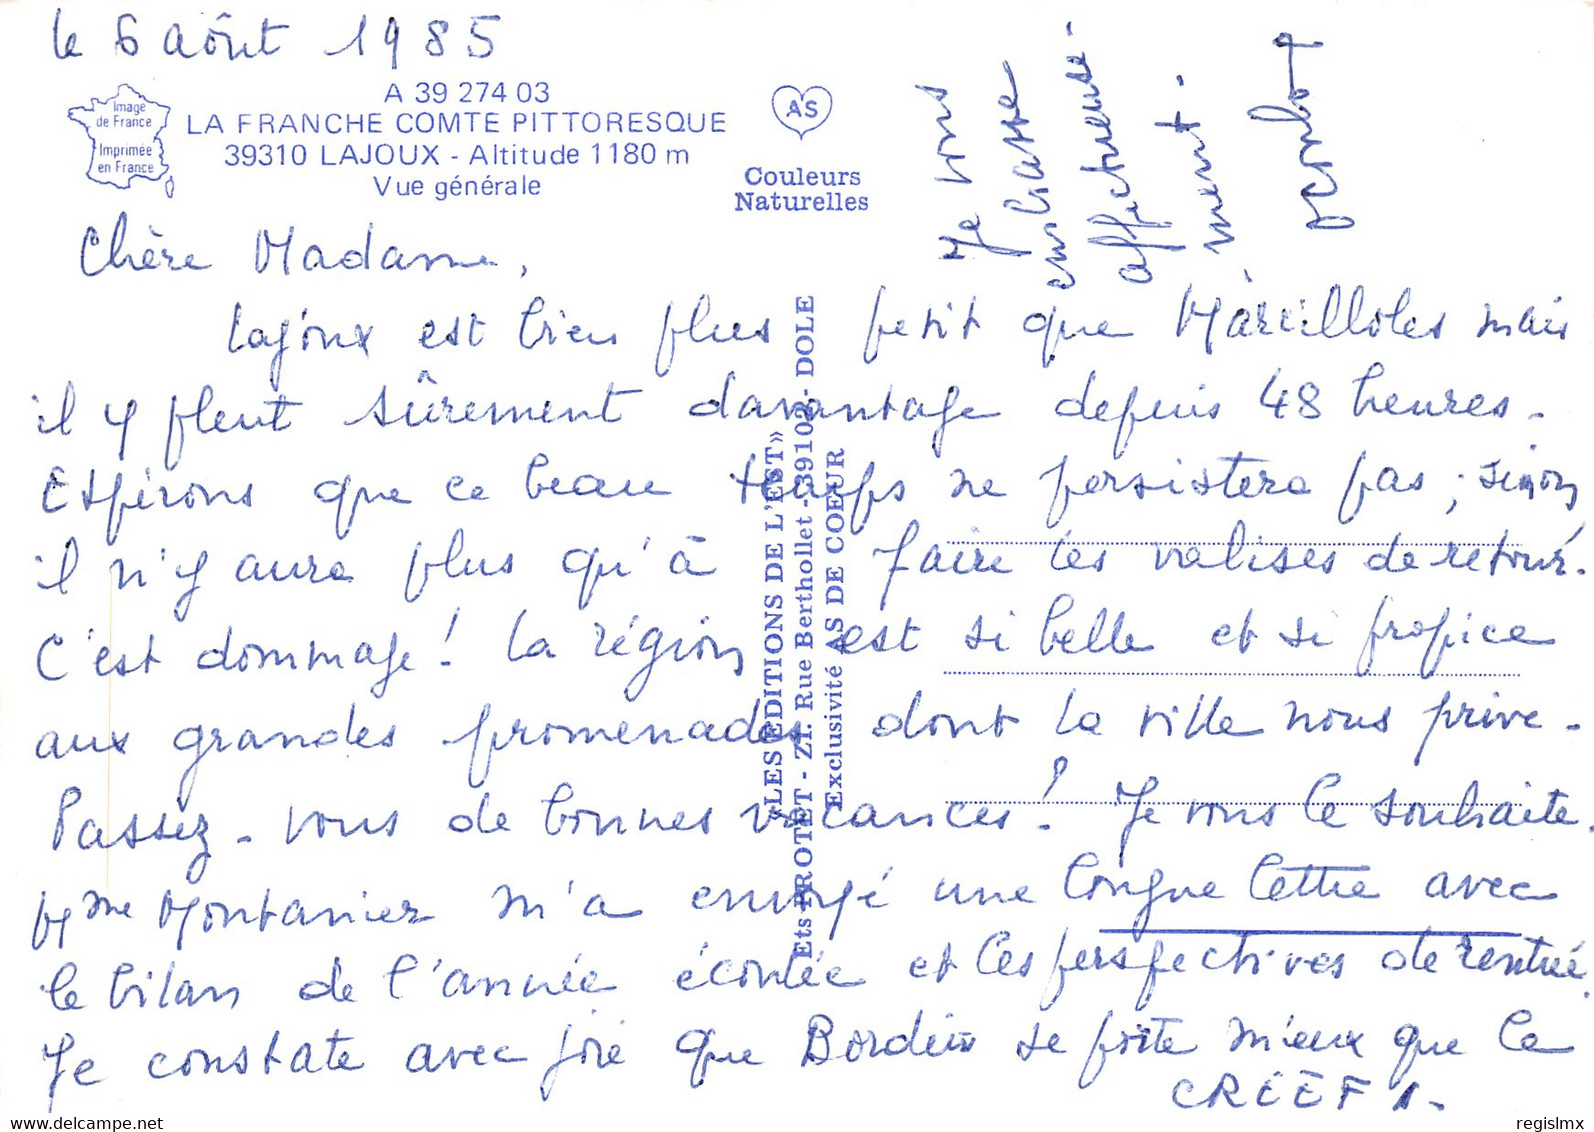 le 6 août 1985
Image
de France
Imprimée
en France
A 39 274 03
LA FRANCHE COMTE PITTORESQUE
39310 LAJOUX - Altitude 1180 m
Vue générale
AS
Couleurs
Naturelles
Chère Madame,
Lajoux est bien plus petit que Marcilloles mais
il y pleut sûrement davantage depuis 48 heures.
Espérons que ce beau temps ne persistera pas ; sinon
il n'y aura plus qu'à faire les valises de retour.
C'est dommage ! La région est si belle et si propice
aux grandes promenades dont la ville nous prive.
Passez-vous de bonnes vacances ! Je vous le souhaite.
Mme Montanier m'a envoyé une longue lettre avec
le bilan de l'année écoulée et les perspectives de rentrée.
Je constate avec joie que Bordier se porte mieux que le
CREEF 1.
Je vous
embrasse
affectueuse-
ment.
«LES EDITIONS DE L'EST»
Ets PROTET - ZI. Rue Berthollet - 39102 - DOLE
Exclusivité AS DE COEUR
regislmx